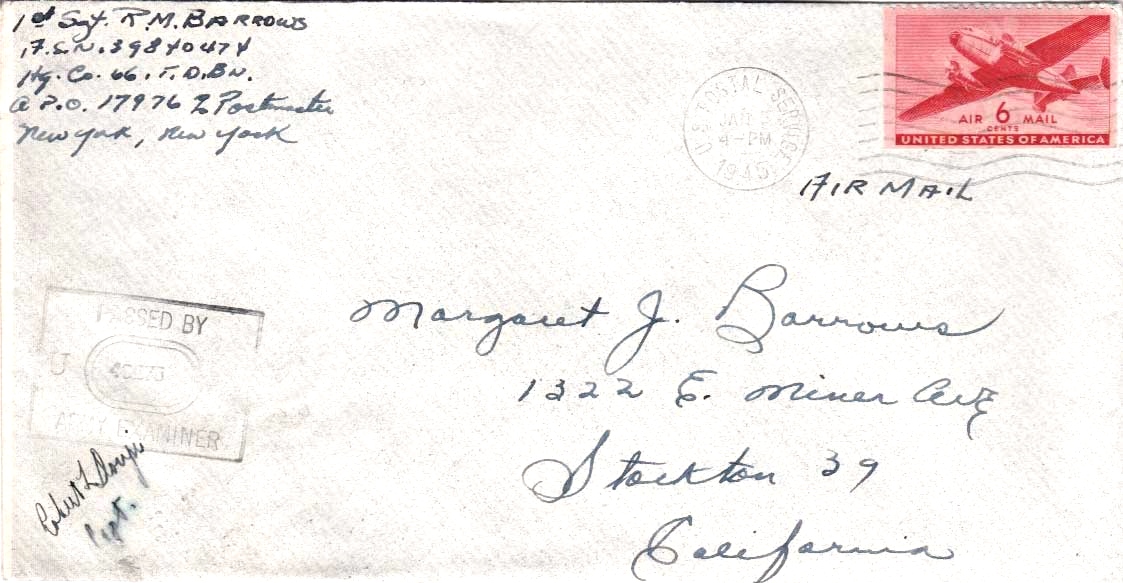 1st Sgt. R.M. BARROWS
A.S.N. 39840474
Hq. Co. 66. T. D. BN.
A P.O. 17976 % Postmaster
New York, New York
U.S. POSTAL SERVICE
JAN
4 PM
1945
AIR 6 MAIL
CENTS
UNITED STATES OF AMERICA
AIR MAIL
Margaret J. Barrows
1322 E. Miner AVE
Stockton 39
California
PASSED BY
U
ARMY EXAMINER
Capt.